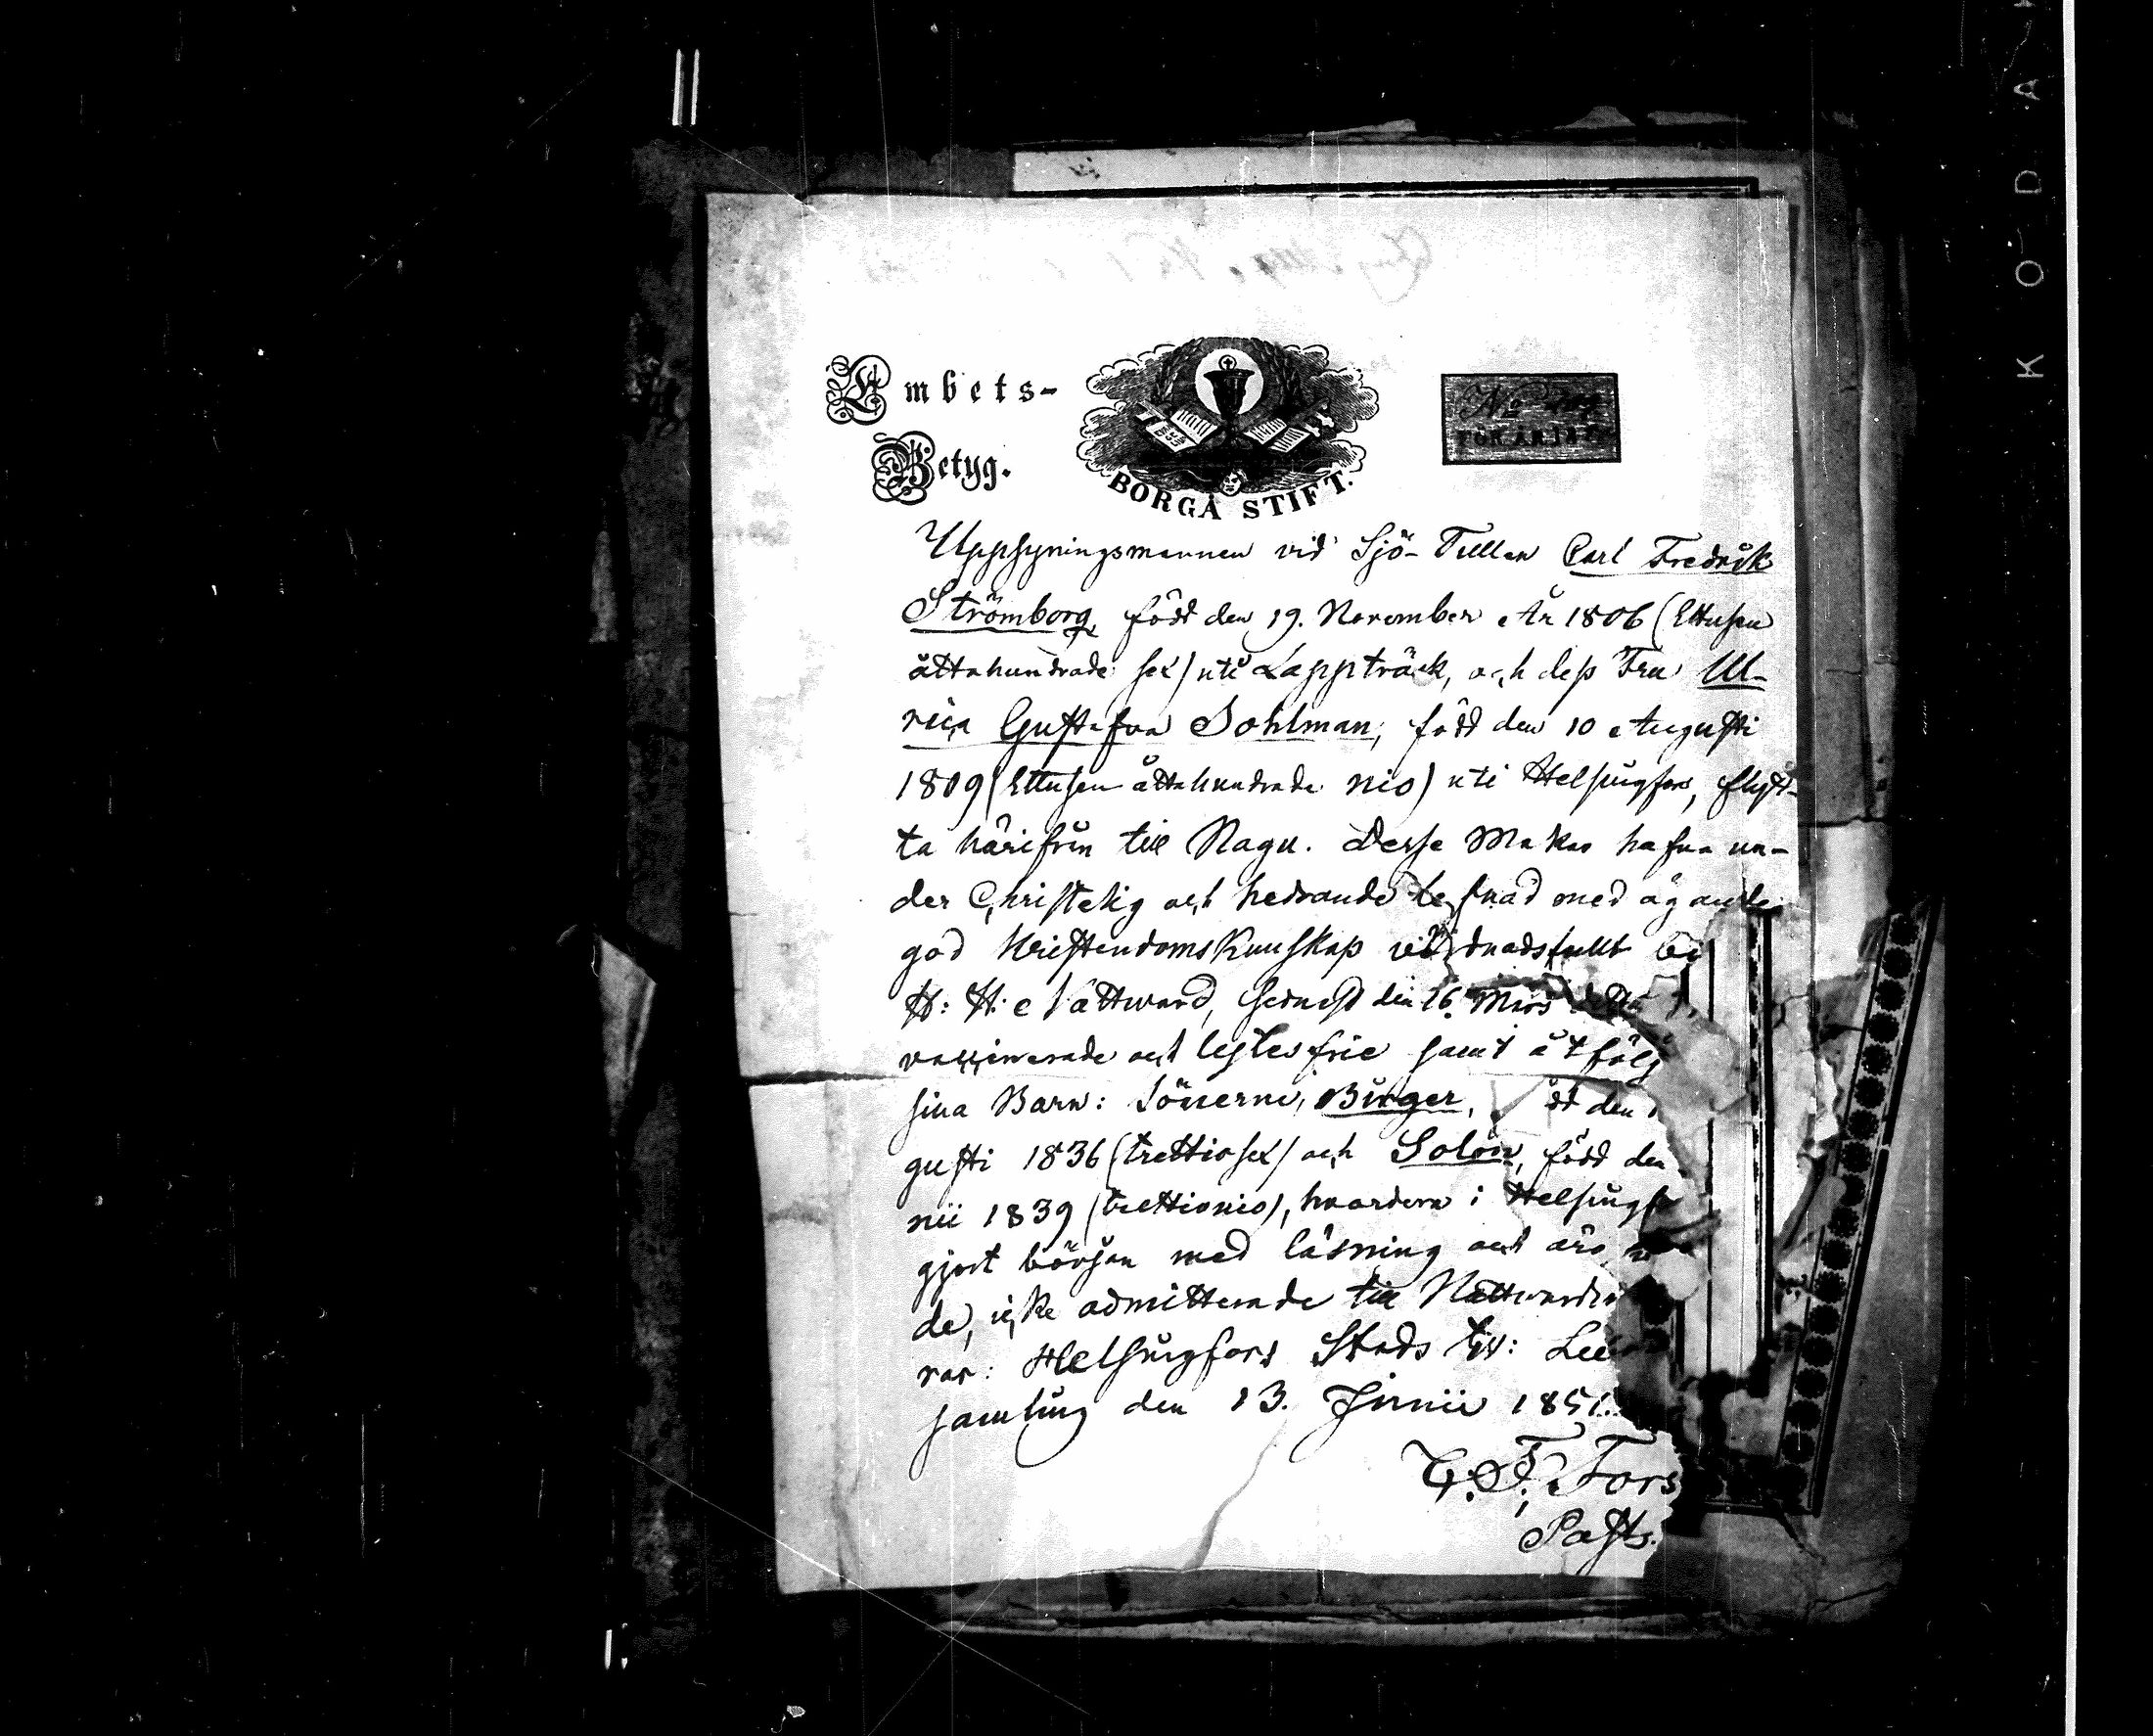 Embets-
Betyg.
BORGÅ STIFT.
No
FÖR ÅR 18
Uppsyningsmannen vid Sjö-Tullen Carl Fredrik
Strömborg, född den 19. November År 1806 (Ettusen
åttahundrade sex) uti Lappträck, och dess Fru Ul-
rica Gustafva Sohlman, född den 10 Augusti
1809 (Ettusen åttahundrade nio) uti Helsingfors, flyt-
ta härifrån till Nagu. Desse Makar hafva un-
der Christelig och hedrande lefnad med ägande
god Kristendomskunskap vördnadsfullt be
H: H: Nattward, sednast den 16. Mars
vaccinerade och lystesfrie samt åtfölj
sina Barn: Sönerne, Birger, född den
gusti 1836 (trettiosex) och Solon, född den
nii 1839 (trettionio), hvardera i Helsingfo
gjort början med läsning och äro
de, icke admitterade till Nattvarden
rar: Helsingfors Stads Ev: Lu
samling den 13. Junii 1851.
C. F. Fors
Past.
KODAK